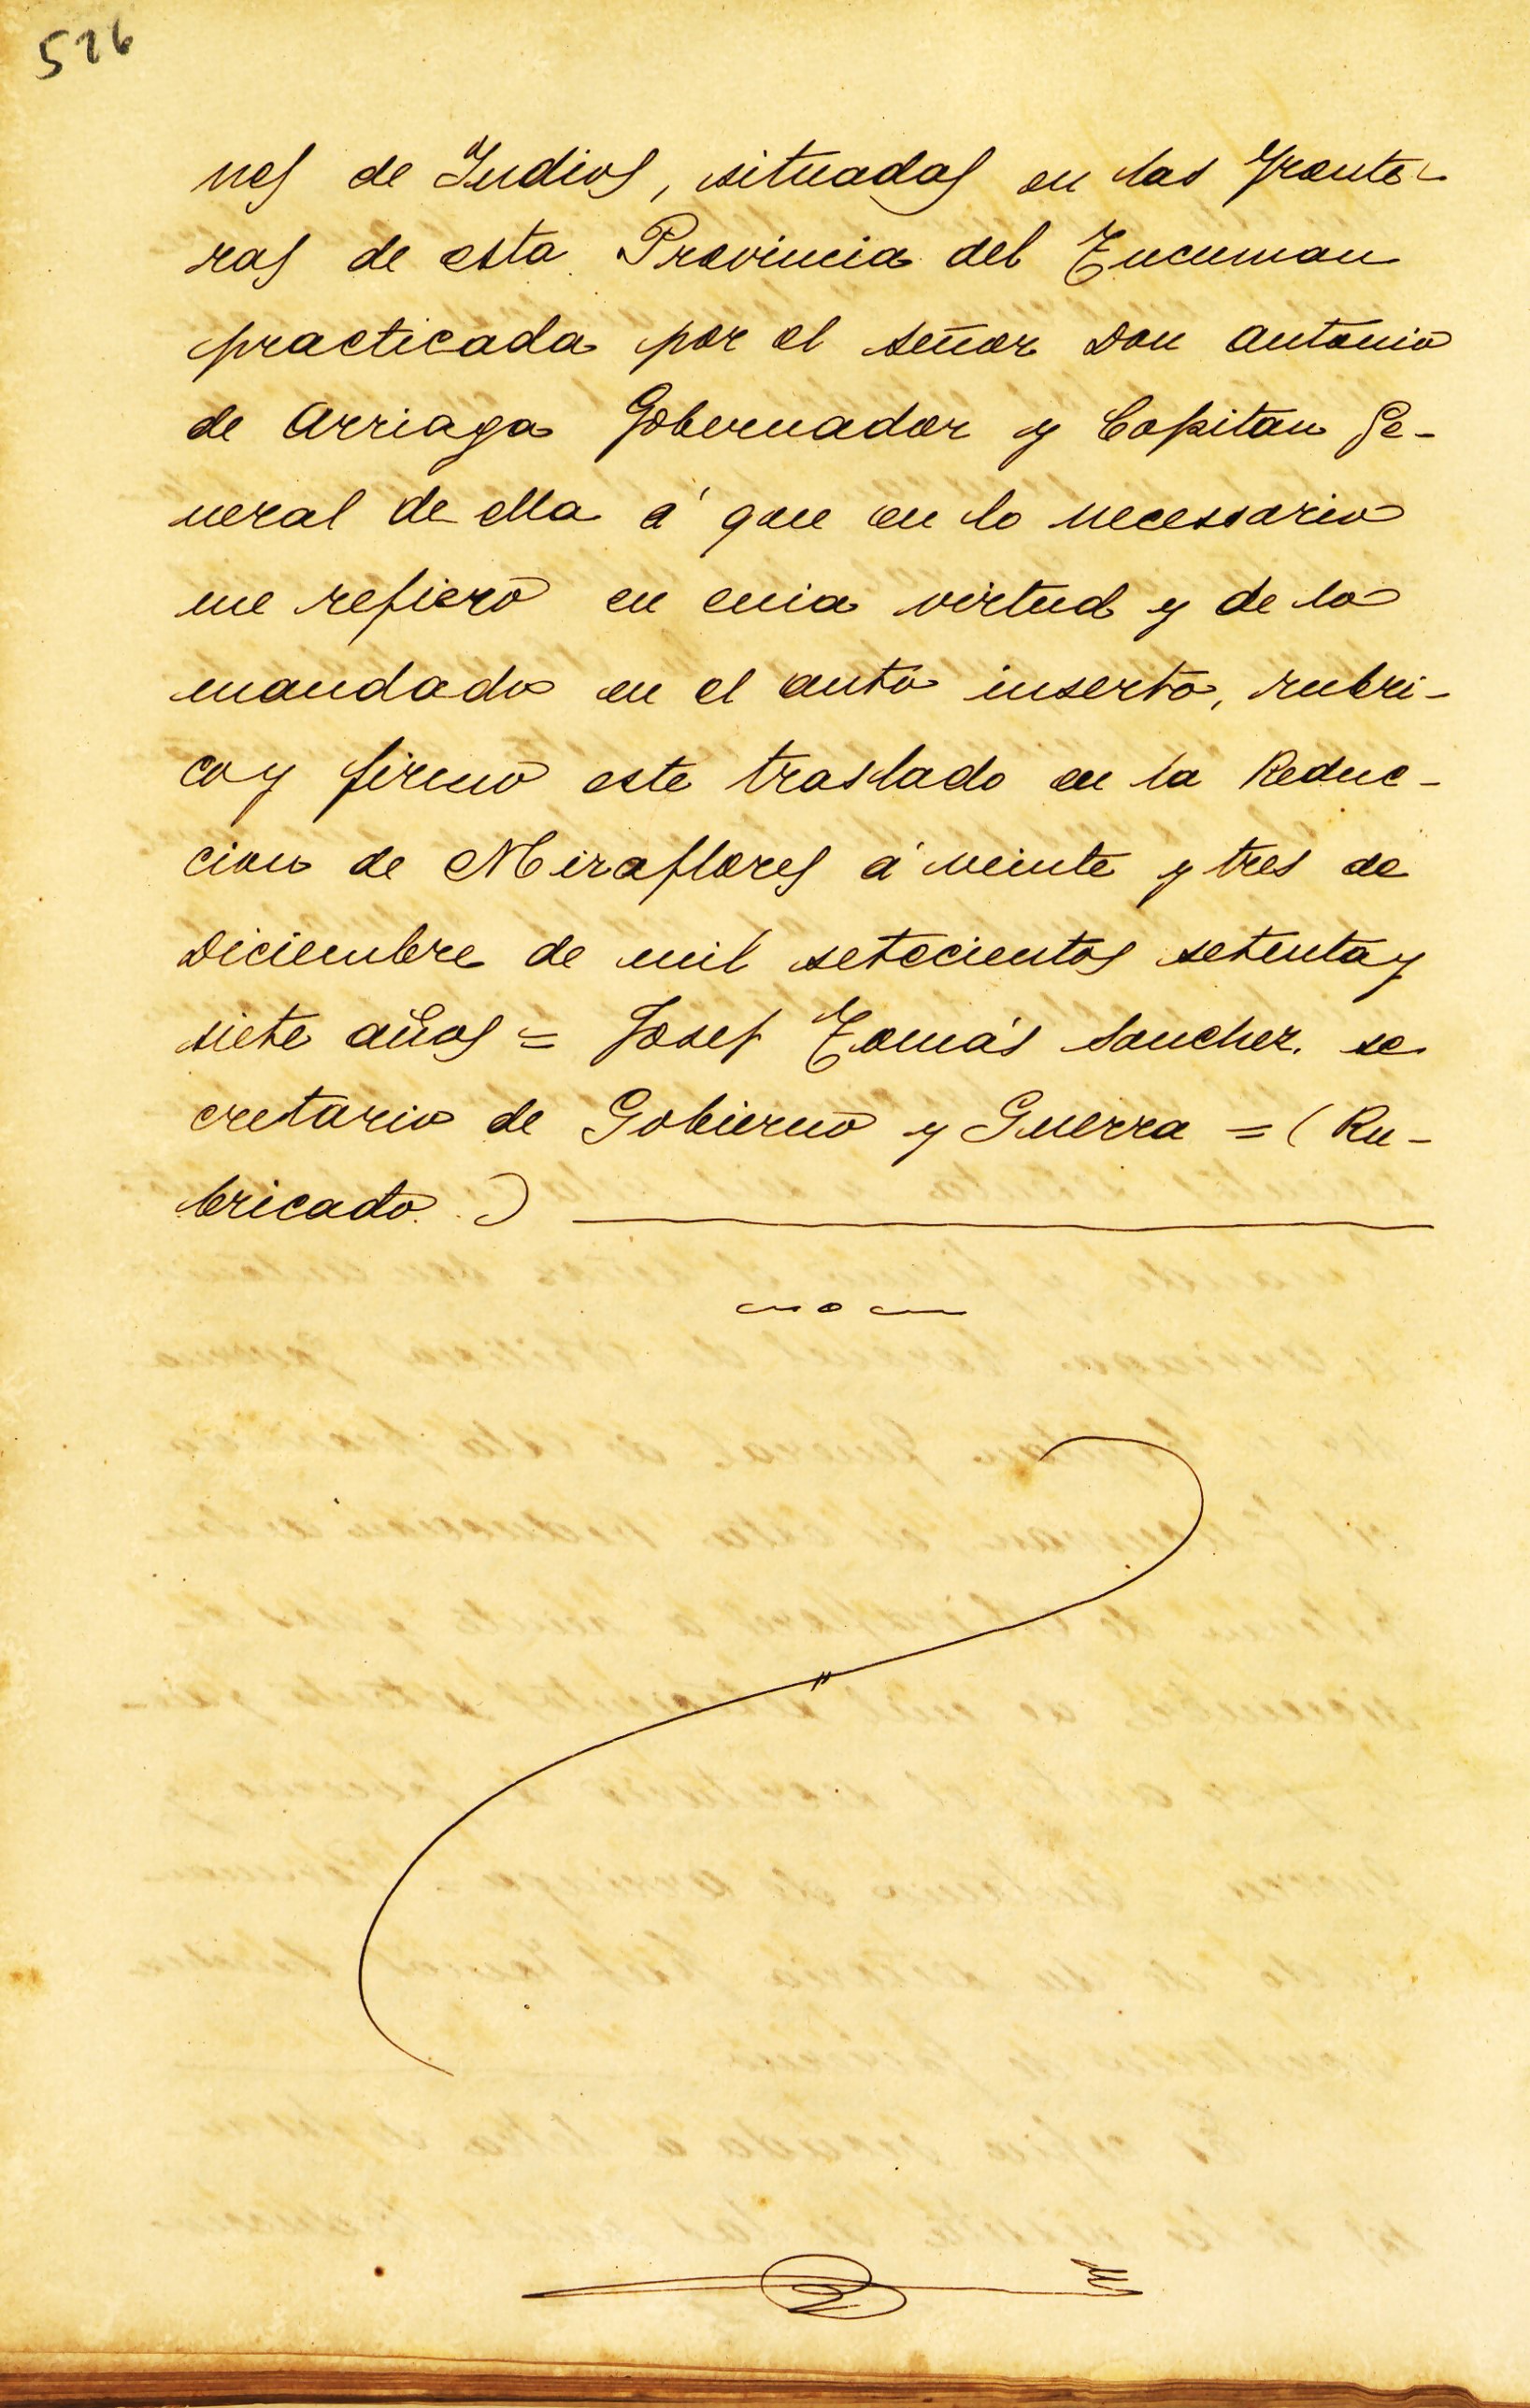 526
nes de Indios, situadas en las Fronte-
ras de esta Provincia del Tucuman
practicada por el señor Don Antonio
de Arriaga Gobernador y Capitan Ge-
neral de ella á que en lo necessario
me refiero en cuia virtud y de lo
mandado en el auto inserto, rubri-
co y firmo este traslado en la Reduc-
cion de Miraflores á veinte y tres de
Diciembre de mil setecientos setenta y
siete años = Josef Tomás Sanchez. se
cretario de Gobierno y Guerra = (Ru-
bricado.)